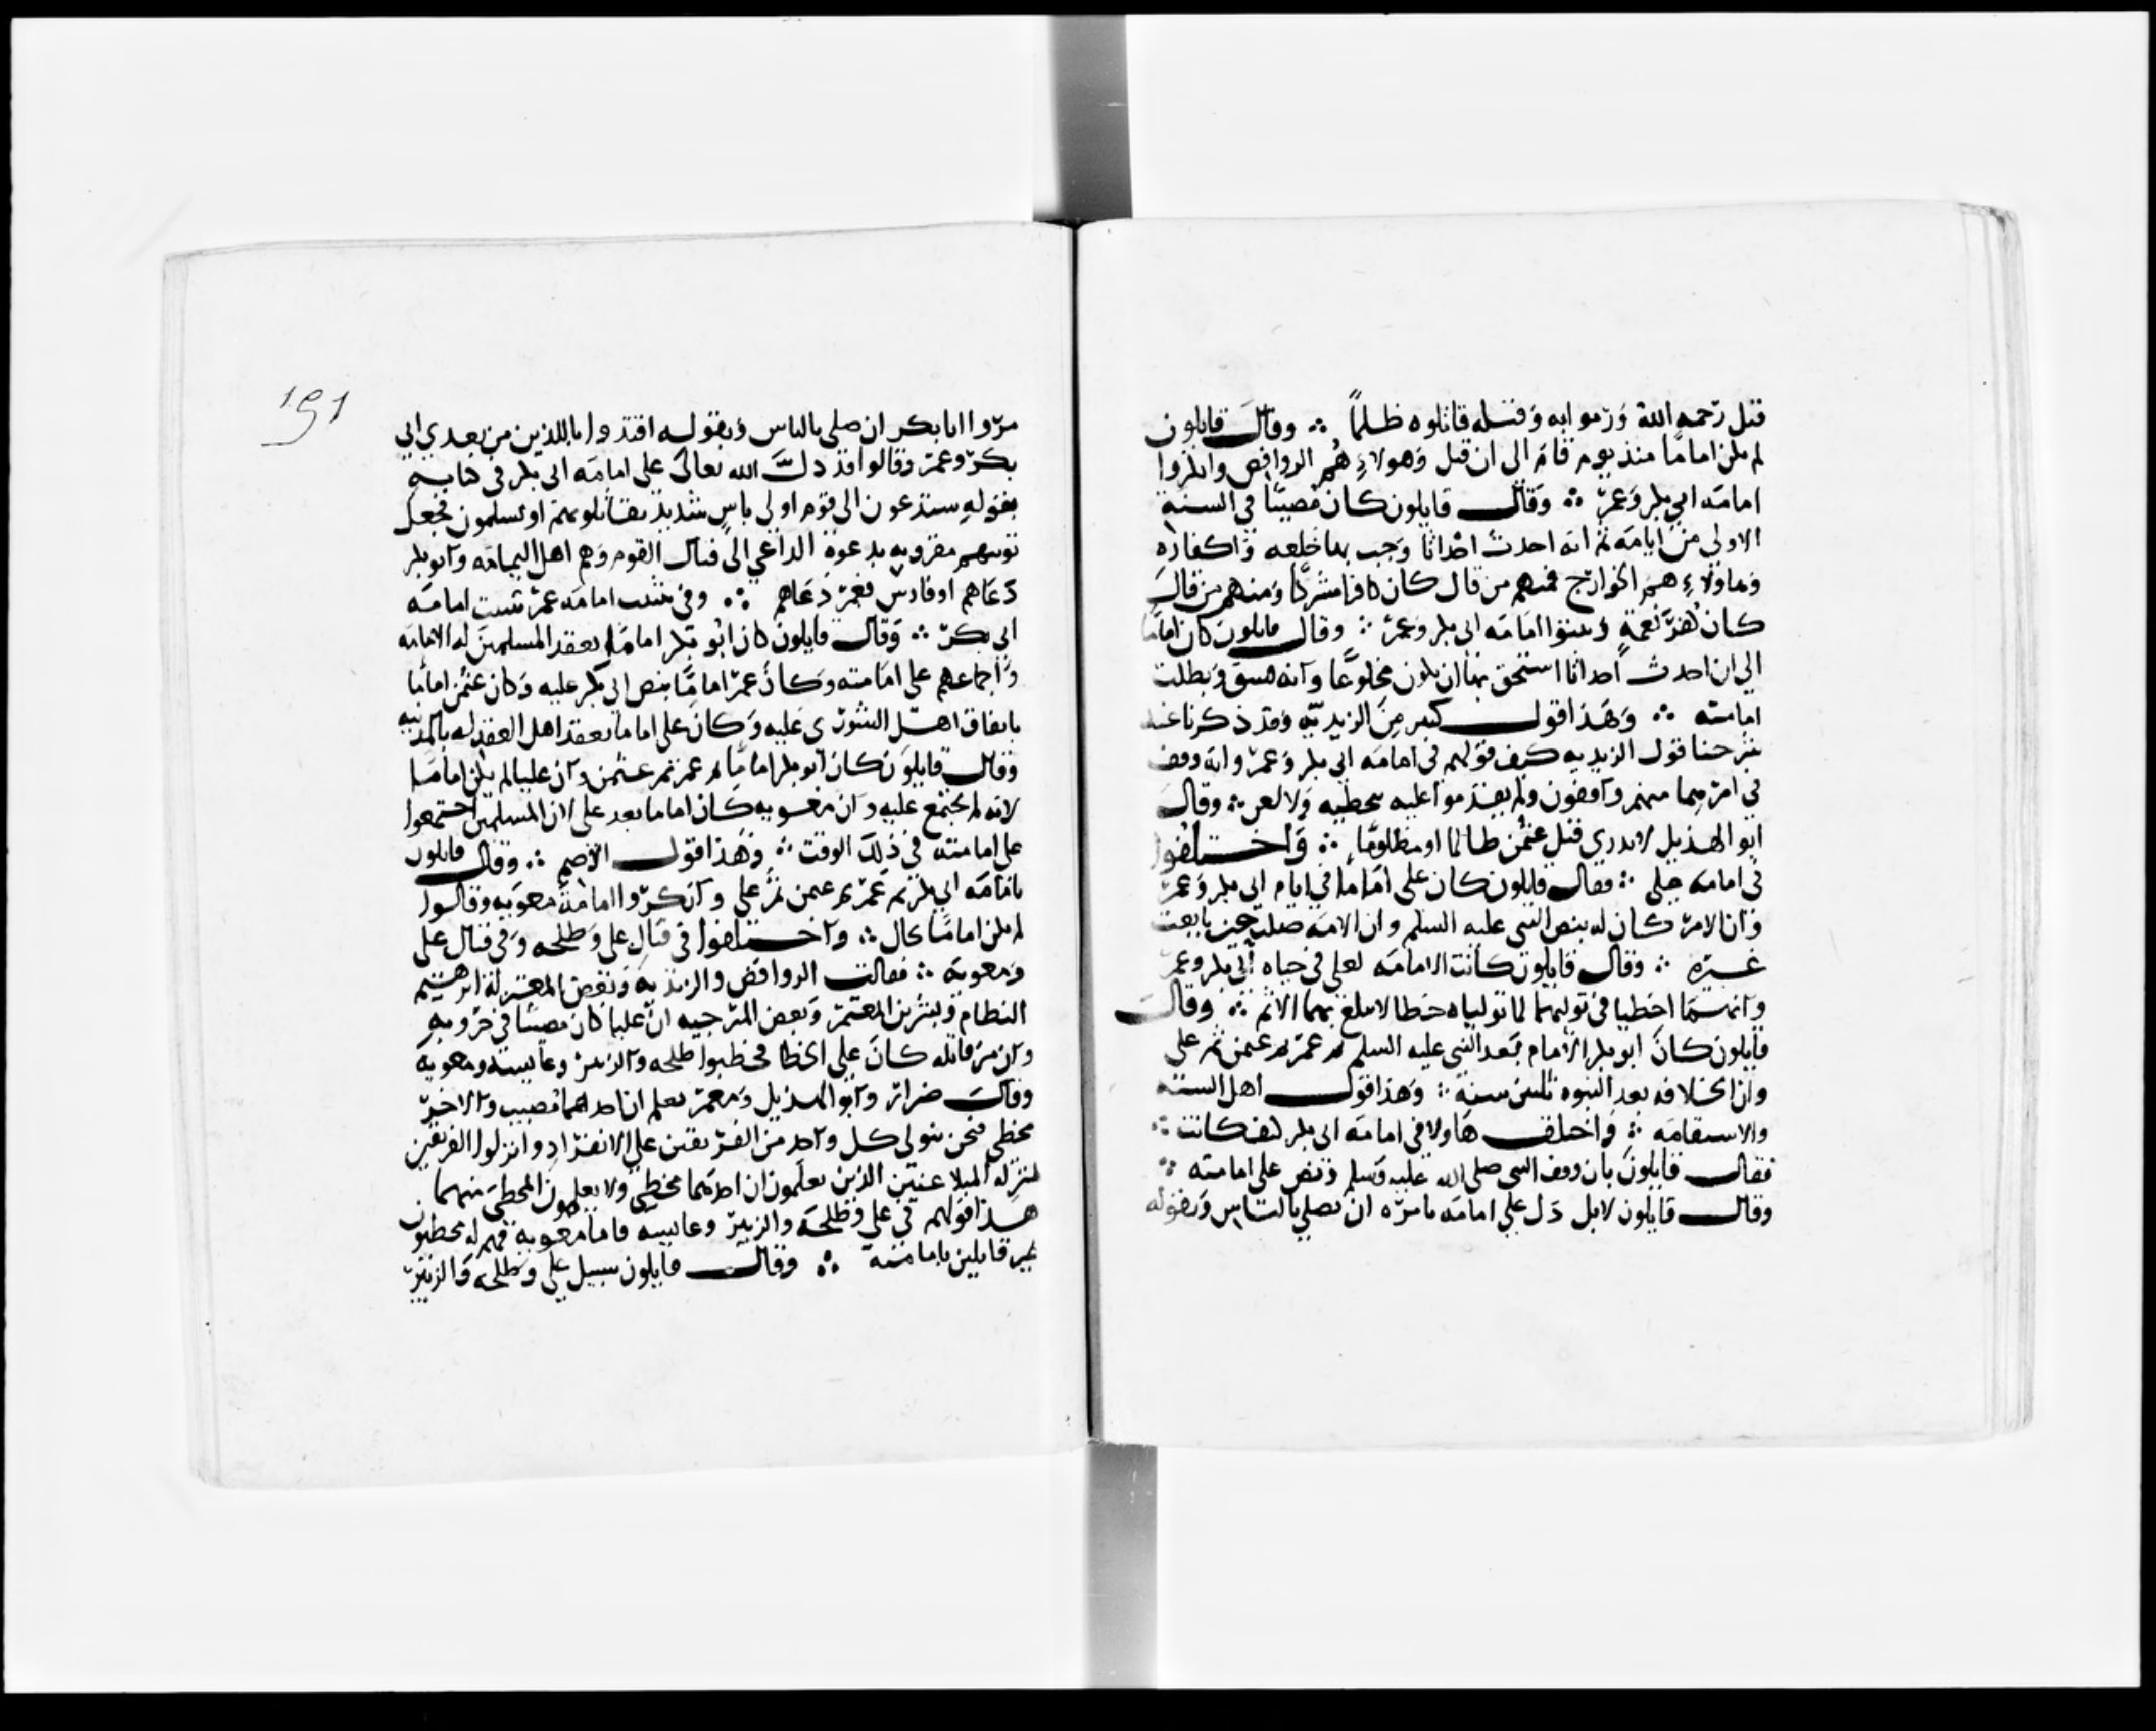 قتل رحمه الله ورموا به وقتله قاتلوه ظلماً ∴ وقال قايلون
لم يكن اماما منذ يوم قام الى ان قتل وهولاءِ هم الروافض وانكروا
امامه ابي بكر وعمر ∴ وقال قايلون كان مصيبًا في السنة
الاولى من ايامه ثم انه احدث احداثا وجب بها خلعه واكفاره
وهاولاءِ هم الخوارج فمنهم من قال كان كافرا مشركا ومنهم من قال
كان كفر نعمةٍ وثبتوا امامه ابي بكر وعمر ∴ وقال قايلون كان اماما
الى ان احدث احداثا استحق بها ان يكون مخلوعًا وانه فسق وبطلت
امامته ∴ وهذا قول كبير من الزيديّه وقد ذكرنا عند
شرحنا قول الزيديه كيف قولهم في امامه ابي بكر وعمر وانه وقف
في امرهما منهم واقفون ولم يقدموا عليه بتخطيه ولا لعن ∴ وقال
ابو الهذيل لا ندري قتل عثمن ظالما او مظلومًا ∴ واختلفوا
في امامه علي ∴ فقال قايلون كان علي اماما في ايام ابي بكر وعمر
وان الامر كان له بنص النبي عليه السلم وان الامه ضلت حين بايعت
غيره ∴ وقال قايلون كانت الامامه لعلي في حياه ابي بكر وعمر
وانهما اخطيا في توليهما لما تولياه خطا لا يبلغ بهما الاثم ∴ وقال
قايلون كان ابو بكر الامام بعد النبي عليه السلم ثم عمر ثم عثمن ثم علي
وان الخلافه بعد النبوه ثلثين سنة ∴ وهذا قول اهل السنه
والاستقامه ∴ واختلف هاولا في امامه ابي بكر كيف كانت ∴
فقال قايلون بان وقف النبي صلى الله عليه وسلم ونص على امامته ∴
وقال قايلون لا بل دل علي امامه بامره ان يصلي بالناس وبقوله
191
مروا ابا بكر ان صلى بالناس وبقوله اقتدوا باللذين من بعدي ابي
بكر وعمر وقالوا قد دلّ الله تعالى على امامه ابي بكر في كتابه
بقوله ستدعون الى قوم اولى باسٍ شديد تقاتلونهم او يسلمون فجعل
توبتهم مقرونه بدعوة الداعي الى قتال القوم وهم اهل اليمامه وابو بكر
دعاهم او فارس فعمر دعاهم ∴ وفي تثبيت امامه عمر تثبيت امامه
ابي بكر ∴ وقال قايلون كان ابو بكر اماما بعقد المسلمين له الامامه
واجماعهم على امامته وكان عمر امامًا بنص ابي بكر عليه وكان عثمن اماما
باتفاق اهل الشورى عليه وكان علي اماما بعقد اهل العقد له بالمدينه
وقال قايلون كان ابو بكر امامًا ثم عمر ثم عثمن وان عليا لم يكن اماما
لانه لم يجتمع عليه وان معويه كان اماما بعد علي لان المسلمين اجتمعوا
على امامته في ذلك الوقت ∴ وهذا قول الاصم ∴ وقال قايلون
بامامه ابي بكر ثم عمر ثم عثمن ثم علي وانكروا امامة معويه وقالوا
لم يكن امامًا بحال ∴ واختلفوا في قتال علي وطلحه وفي قتال علي
ومعويه ∴ فقالت الروافض والزيديه وبعض المعتزلة ابرهيم
النظام وبشر بن المعتمر وبعض المرجيه ان عليا كان مصيبًا في حروبه
وان من قاتله كان على الخطا فخطيوا طلحه والزبير وعايشه ومعويه
وقال ضرار وابو الهذيل ومعمر نعلم ان احدهما مصيب والاخر
مخطي فنحن نتولى كل واحد من الفريقين علي الانفراد وانزلوا الفريقين
منزله المتلاعنين الذين يعلمون ان احدهما مخطي ولا يعلمون المخطي منهما
هذا قولهم في علي وطلحه والزبير وعايشه فاما معويه فهم له مخطيون
غير قايلين بامامته ∴ وقال قايلون سبيل علي وطلحه والزبير